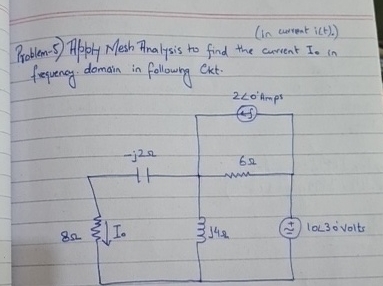 (in current i(t).)
Problem-5) Apply Mesh Analysis to find the current I₀ in
frequency domain in following Ckt.
2∠0° Amps
-j2Ω
6Ω
8Ω
I₀
j4Ω
10∠30° Volts